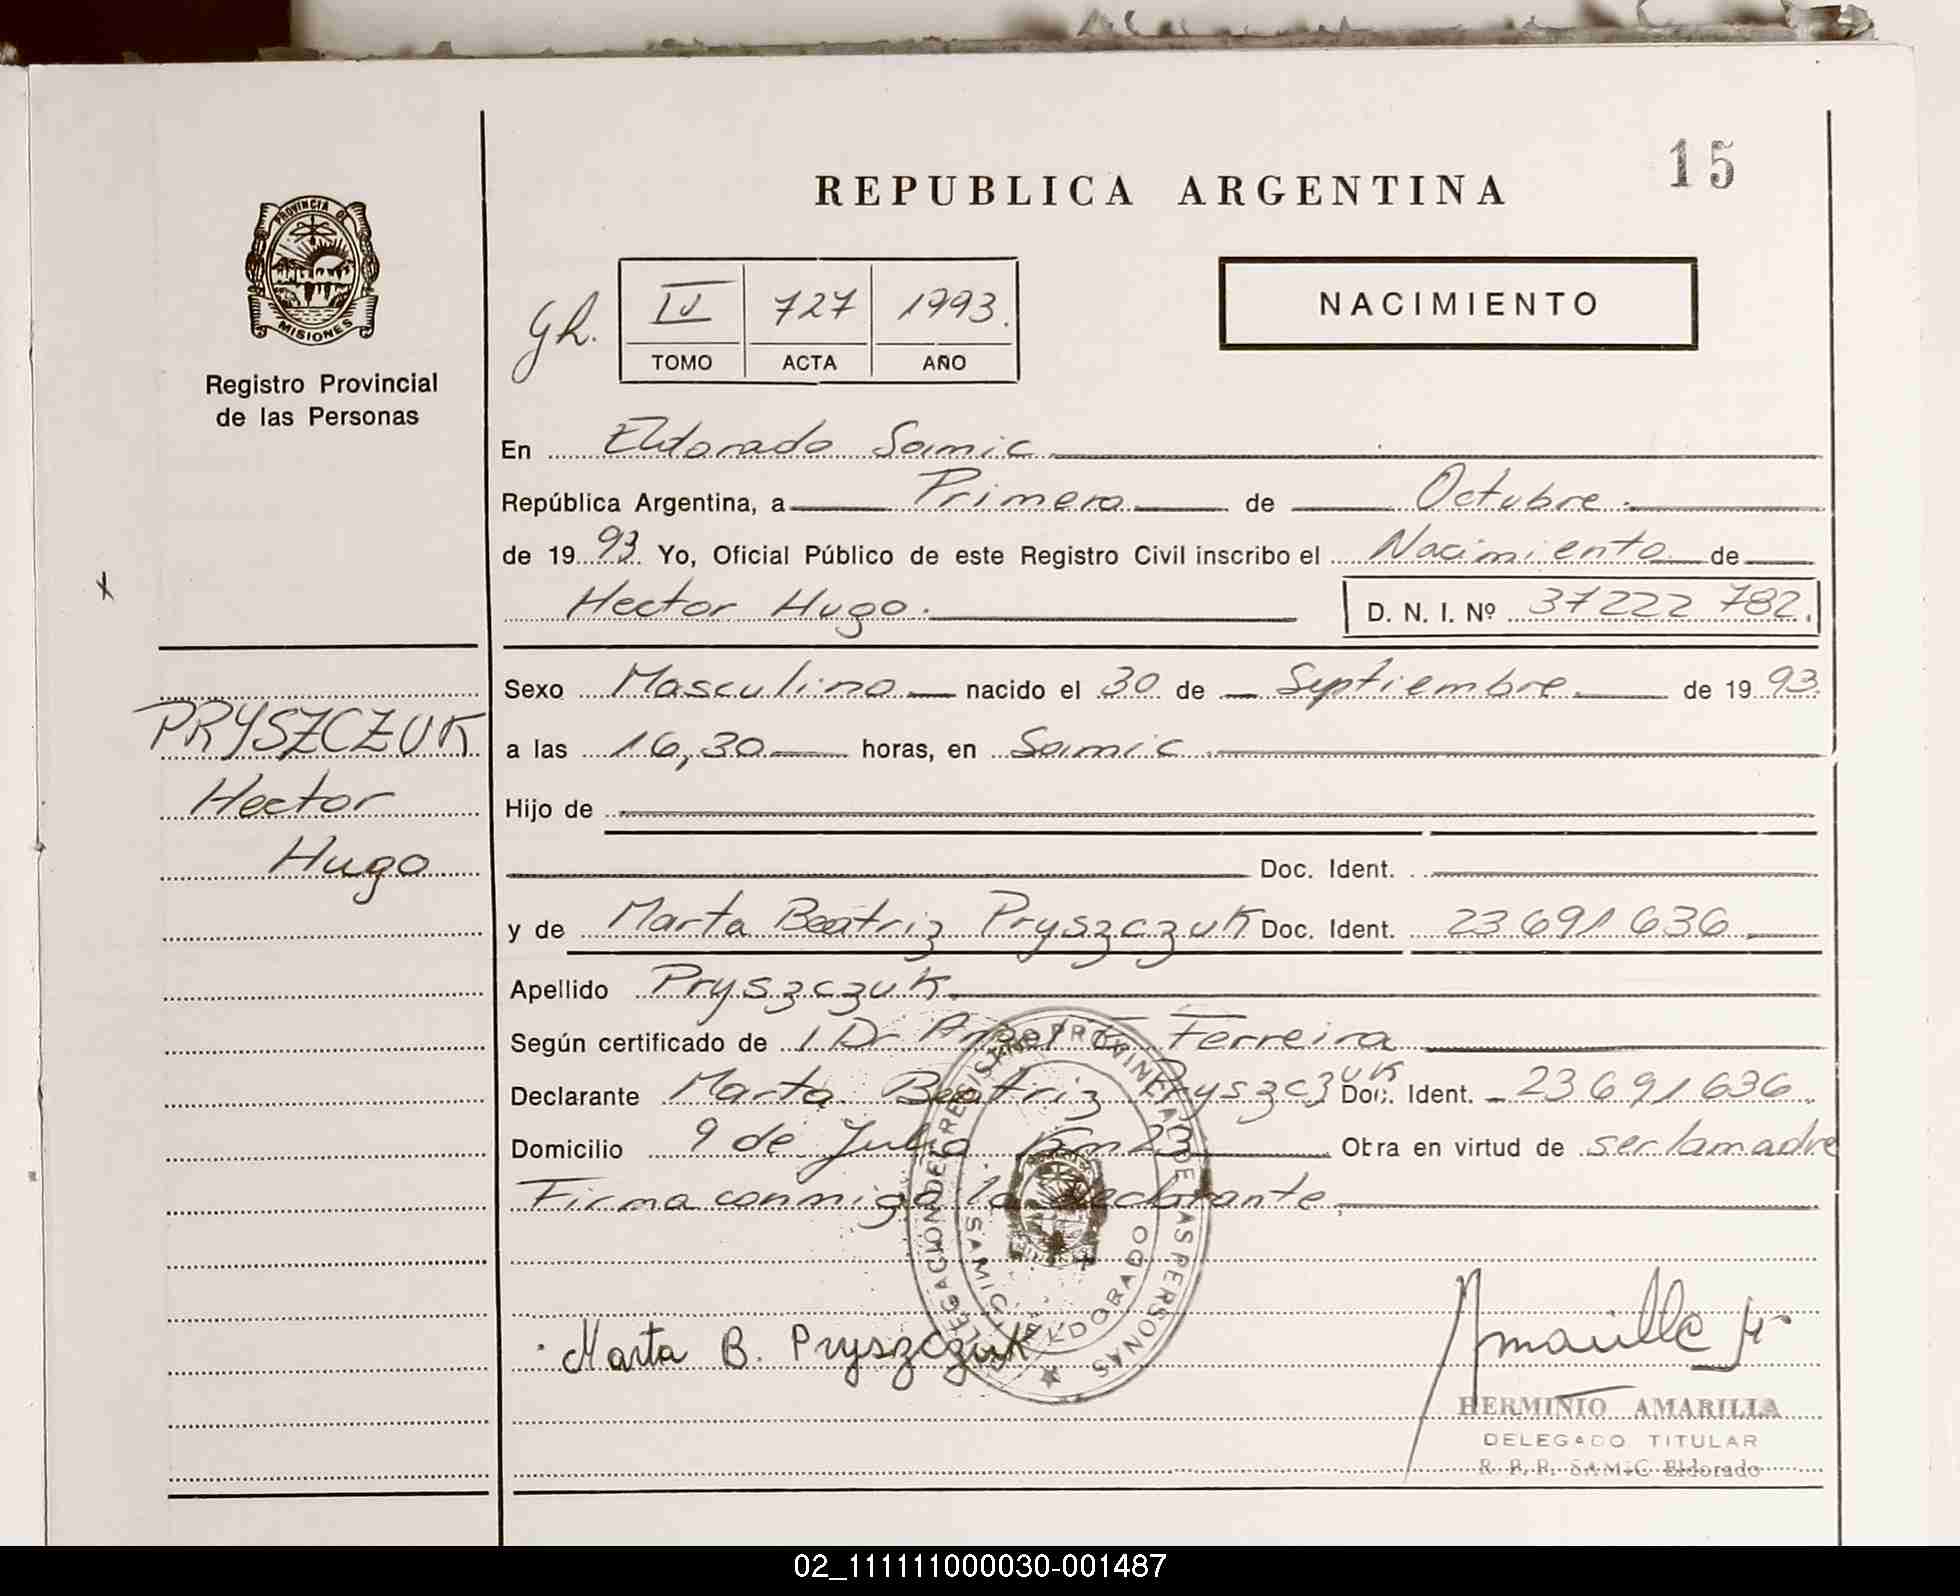 15
REPUBLICA ARGENTINA
PROVINCIA DE
MISIONES
Registro Provincial
de las Personas
Gh.
IV 727 1993.
TOMO ACTA AÑO
NACIMIENTO
En Eldorado Samic
República Argentina, a Primero de Octubre
de 1993 Yo, Oficial Público de este Registro Civil inscribo el Nacimiento de
Hector Hugo. D. N. I. Nº 37222 782.
Sexo Masculino nacido el 30 de Septiembre de 1993.
PRYSZCZUK
a las 16,30 horas, en Samic
Hector
Hijo de
Hugo
Doc. Ident.
y de Marta Beatriz Pryszczuk Doc. Ident. 23 691 636
Apellido Pryszczuk
Según certificado de 1 Dr Ferreira
Declarante Marta Beatriz Pryszczuk Doc. Ident. 23 691 636
Domicilio 9 de Julio Km 23 Otra en virtud de ser la madre
Firma conmigo la declarante
DELEGACION DEL REGISTRO PROVINCIAL DE LAS PERSONAS
SAMIC ELDORADO
Marta B. Pryszczuk
Amarilla H
HERMINIO AMARILLA
DELEGADO TITULAR
R. P. P. SAMIC Eldorado
02_111111000030-001487